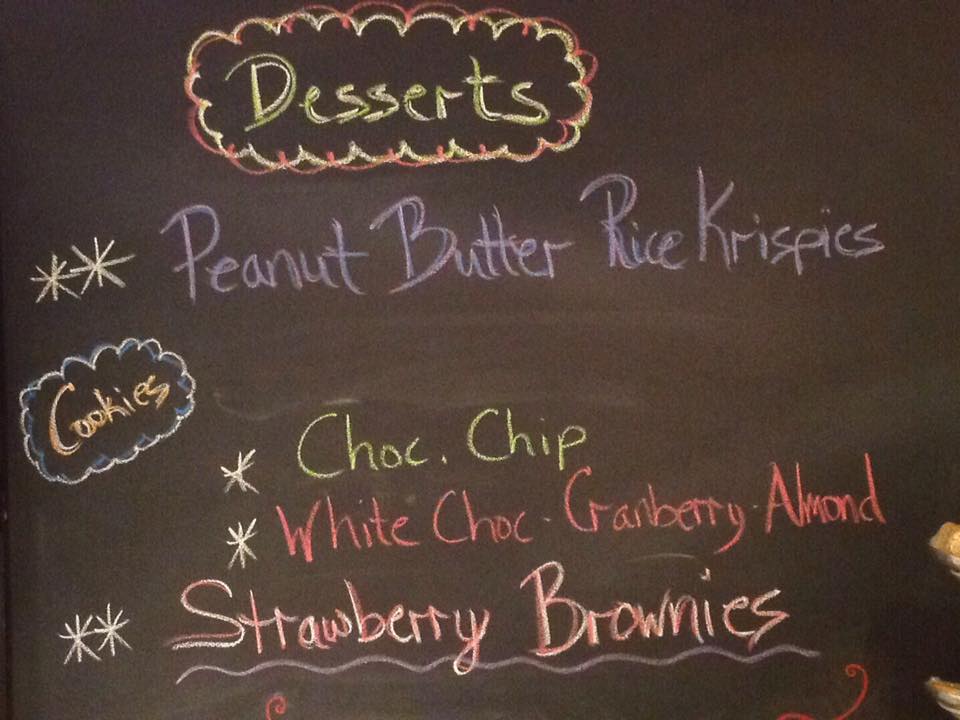 Desserts
** Peanut Butter Rice Krispies
Cookies
* Choc. Chip
* White Choc-Cranberry-Almond
** Strawberry Brownies